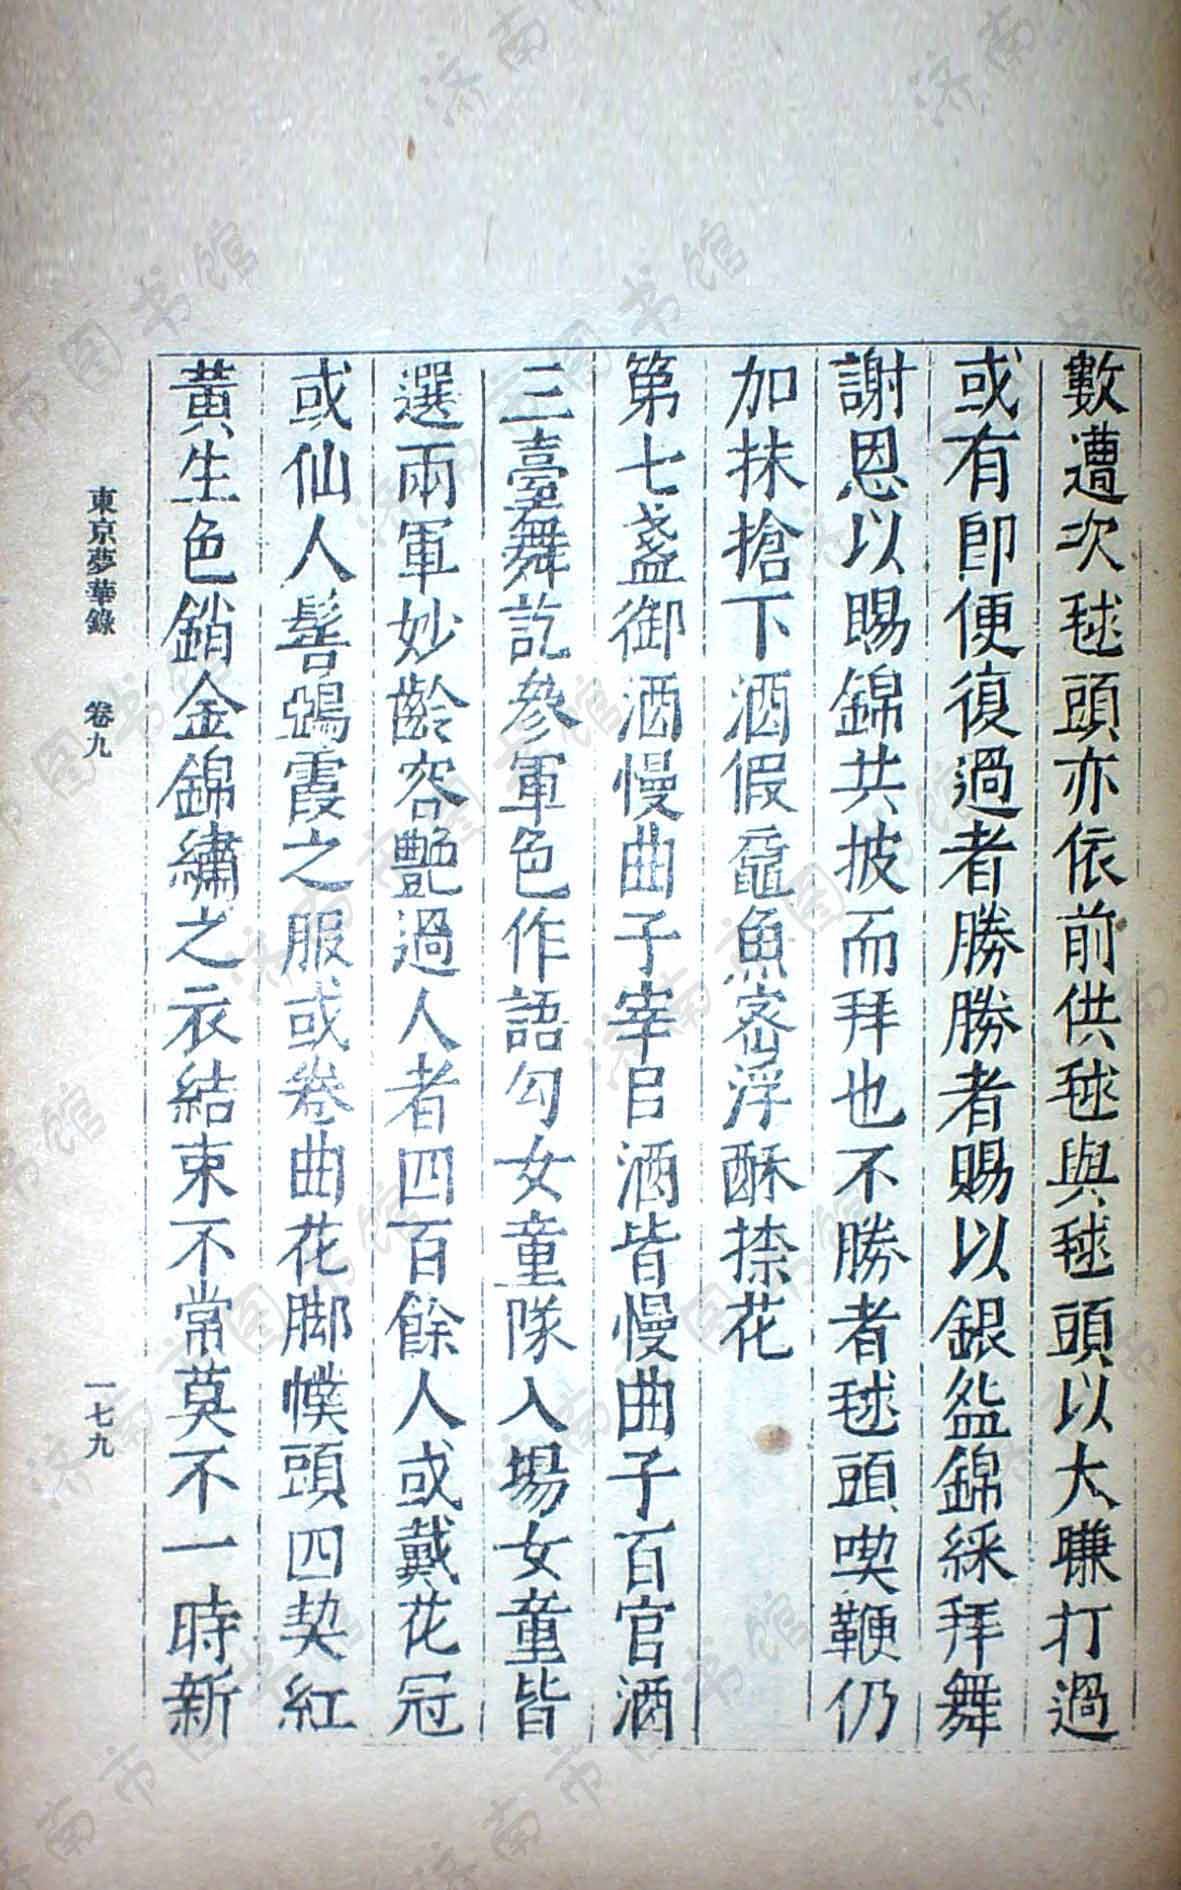 數遭次毬頭亦依前供毬與毬頭以大賺打過
或有即便復過者勝勝者賜以銀盌錦綵拜舞
謝恩以賜錦共披而拜也不勝者毬頭喫鞭仍
加抹搶下酒假黿魚宻浮酥捺花
第七盞御酒慢曲子宰臣酒皆慢曲子百官酒
三臺舞訖參軍色作語勾女童隊入場女童皆
選兩軍妙齡容艷過人者四百餘人或戴花冠
或仙人髻鵶霞之服或卷曲花脚幞頭四契紅
黃生色銷金錦繡之衣結束不常莫不一時新
東京夢華錄 卷九 一七九
济南市图书馆